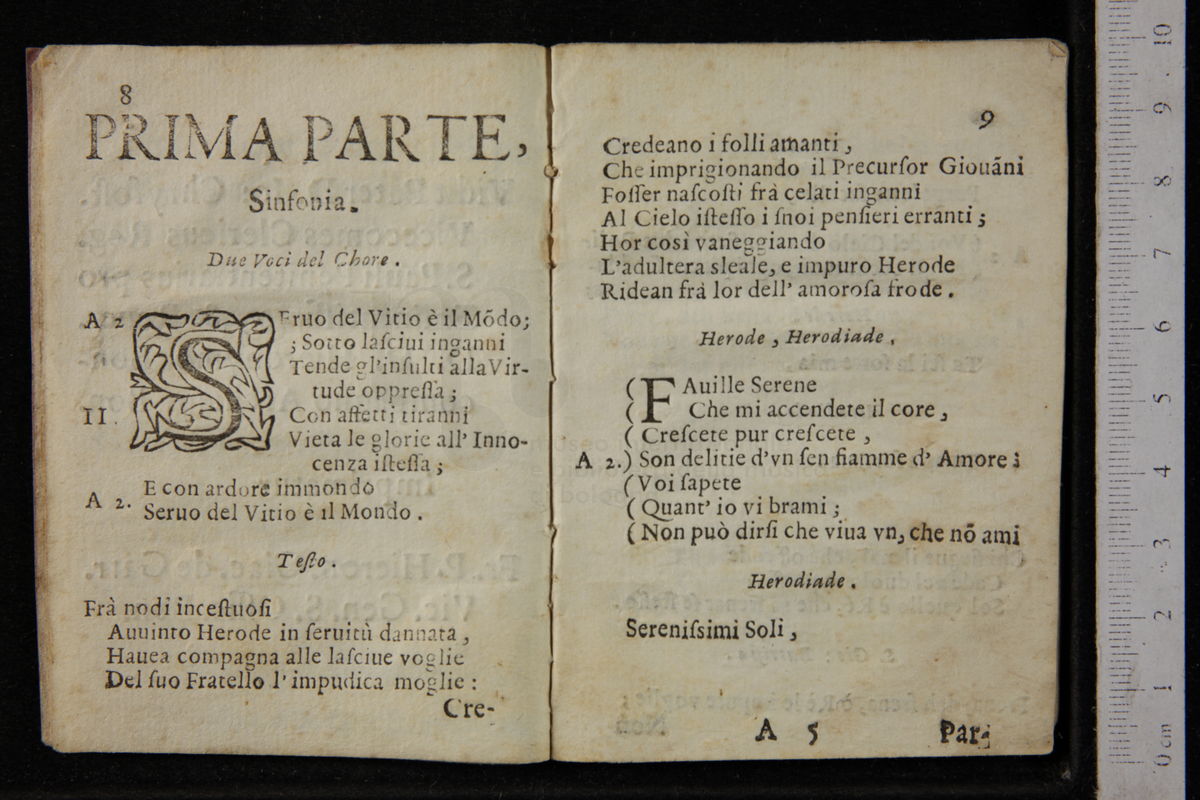 8
PRIMA PARTE,
Sinfonia.
Due Voci del Choro.
A 2 SEruo del Vitio è il Mõdo;
; Sotto laſciui inganni
Tende gl'inſulti alla Vir-
tude oppreſſa;
II. Con affetti tiranni
Vieta le glorie all' Inno-
cenza iſteſſa;
A 2. E con ardore immondo
Seruo del Vitio è il Mondo.
Teſto.
Frà nodi inceſtuoſi
Auuinto Herode in ſeruitù dannata,
Hauea compagna alle laſciue voglie
Del ſuo Fratello l'impudica moglie:
Cre-
9
Credeano i folli amanti,
Che imprigionando il Precurſor Giouãni
Foſſer naſcoſti frà celati inganni
Al Cielo iſteſſo i ſuoi penſieri erranti;
Hor così vaneggiando
L'adultera sleale, e impuro Herode
Ridean frà lor dell' amoroſa frode.
Herode, Herodiade.
( FAuille Serene
( Che mi accendete il core,
( Creſcete pur creſcete,
A 2.) Son delitie d'vn ſen fiamme d' Amore;
( Voi ſapete
( Quant' io vi brami;
( Non può dirſi che viua vn, che nõ ami
Herodiade.
Sereniſsimi Soli,
A 5 Par-
0cm 1 2 3 4 5 6 7 8 9 10